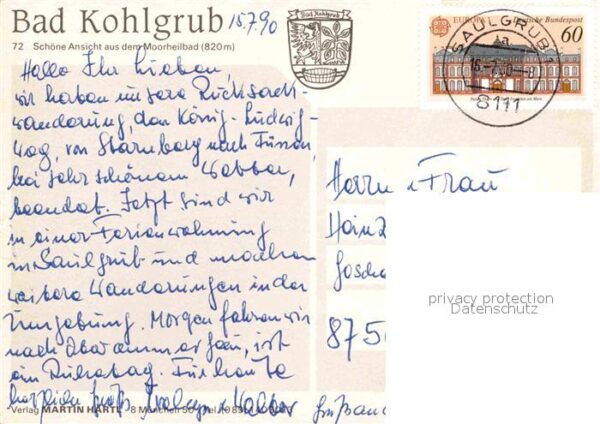 Bad Kohlgrub 15.7.90
72 Schöne Ansicht aus dem Moorheilbad (820m)
Bad Kohlgrub
EUROPA Deutsche Bundespost
60
SAULGRUB 1
8111
Hallo Ihr Lieben,
wir haben unsere Rucksack-
wanderung, den König-Ludwig-
Weg, von Starnberg nach Füssen,
bei sehr schönem Wetter,
beendet. Jetzt sind wir
in einer Ferienwohnung
in Saulgrub und machen
weitere Wanderungen in der
Umgebung. Morgen fahren wir
nach Oberammergau, ist
ein Ruhetag. Für heute
herzliche Grüße
Verlag MARTIN HARTL 8 München 50
Herrn u Frau
Heinz
Gosche
875
privacy protection
Datenschutz